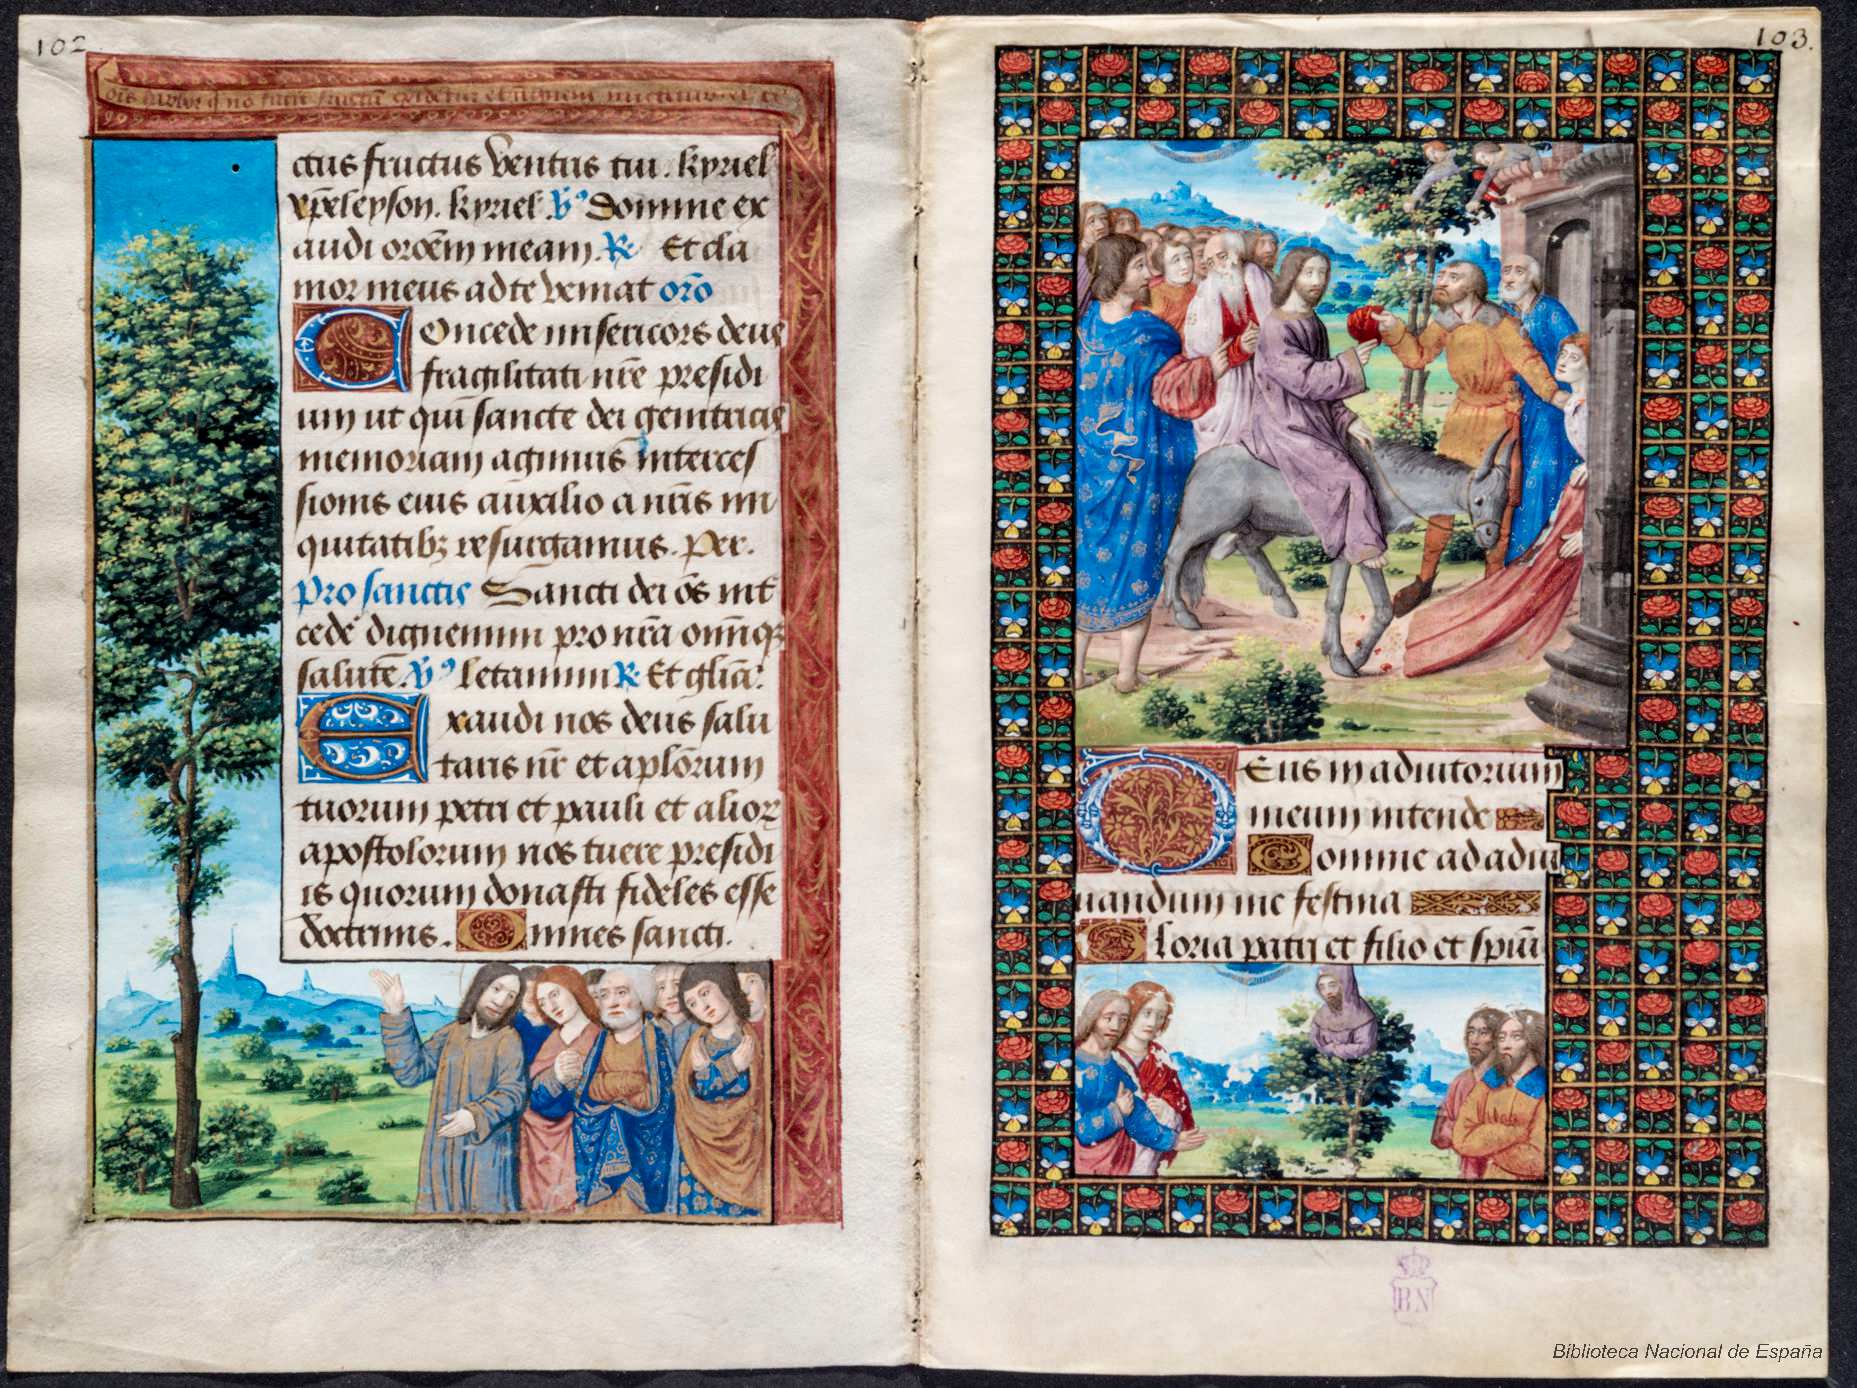 102
ctus fructus ventris tui. kyriel
xp̄eleyson. kyriel ℣ Domine ex
audi orōem meam. ℟ Et cla
mor meus ad te veniat orō
Concede misericors deus
fragilitati nr̄e presidi
um ut qui sancte dei genitricis
memoriam agimus interces
sionis eius auxilio a nr̄is ini
quitatibꝫ resurgamus. Per.
Pro sanctis Sancti dei ōs int̄
cede dignemini pro nr̄a omniqꝫ
salute. ℣ Letamini ℟ Et glia
Exaudi nos deus salu
taris nr̄ et aplōrum
tuorum petri et pauli et alioꝝ
apostolorum nos tuere presidi
is quorum donasti fideles esse
doctrinis. Omnes sancti.
103.
Deus in adiutorium
meum intende
Domine ad adiu
uandum me festina
Gloria patri et filio et spiri
BN
Biblioteca Nacional de España